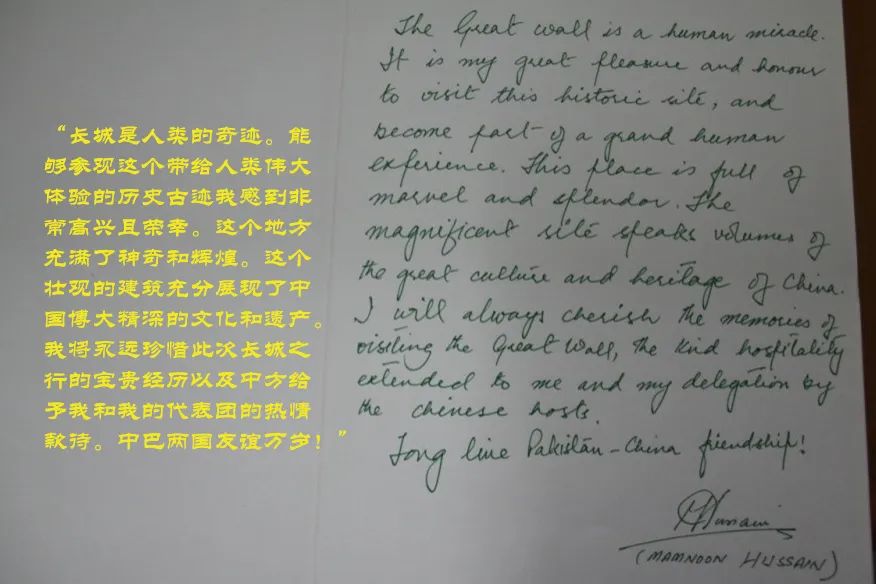 “长城是人类的奇迹。能
够参观这个带给人类伟大
体验的历史古迹我感到非
常高兴且荣幸。这个地方
充满了神奇和辉煌。这个
壮观的建筑充分展现了中
国博大精深的文化和遗产。
我将永远珍惜此次长城之
行的宝贵经历以及中方给
予我和我的代表团的热情
款待。中巴两国友谊万岁！”
The Great wall is a human miracle.
It is my great pleasure and honour
to visit this historic site, and
become part of a grand human
experience. This place is full of
marvel and splendor. The
magnificent site speaks volumes of
the great culture and heritage of China.
I will always cherish the memories of
visiting the Great Wall, the kind hospitality
extended to me and my delegation by
the chinese hosts.
Long live Pakistan-China friendship!
MHussain
(MAMNOON HUSSAIN)